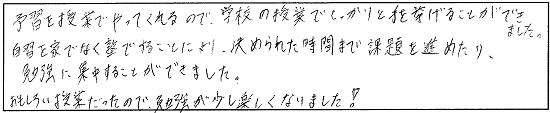 予習を授業でやってくれるので、学校の授業でしっかりと手を挙げることができました。
自習を家でなく塾でやることにより、決められた時間まで課題を進めたり、
勉強に集中することができました。
おもしろい授業だったので、勉強が少し楽しくなりました！